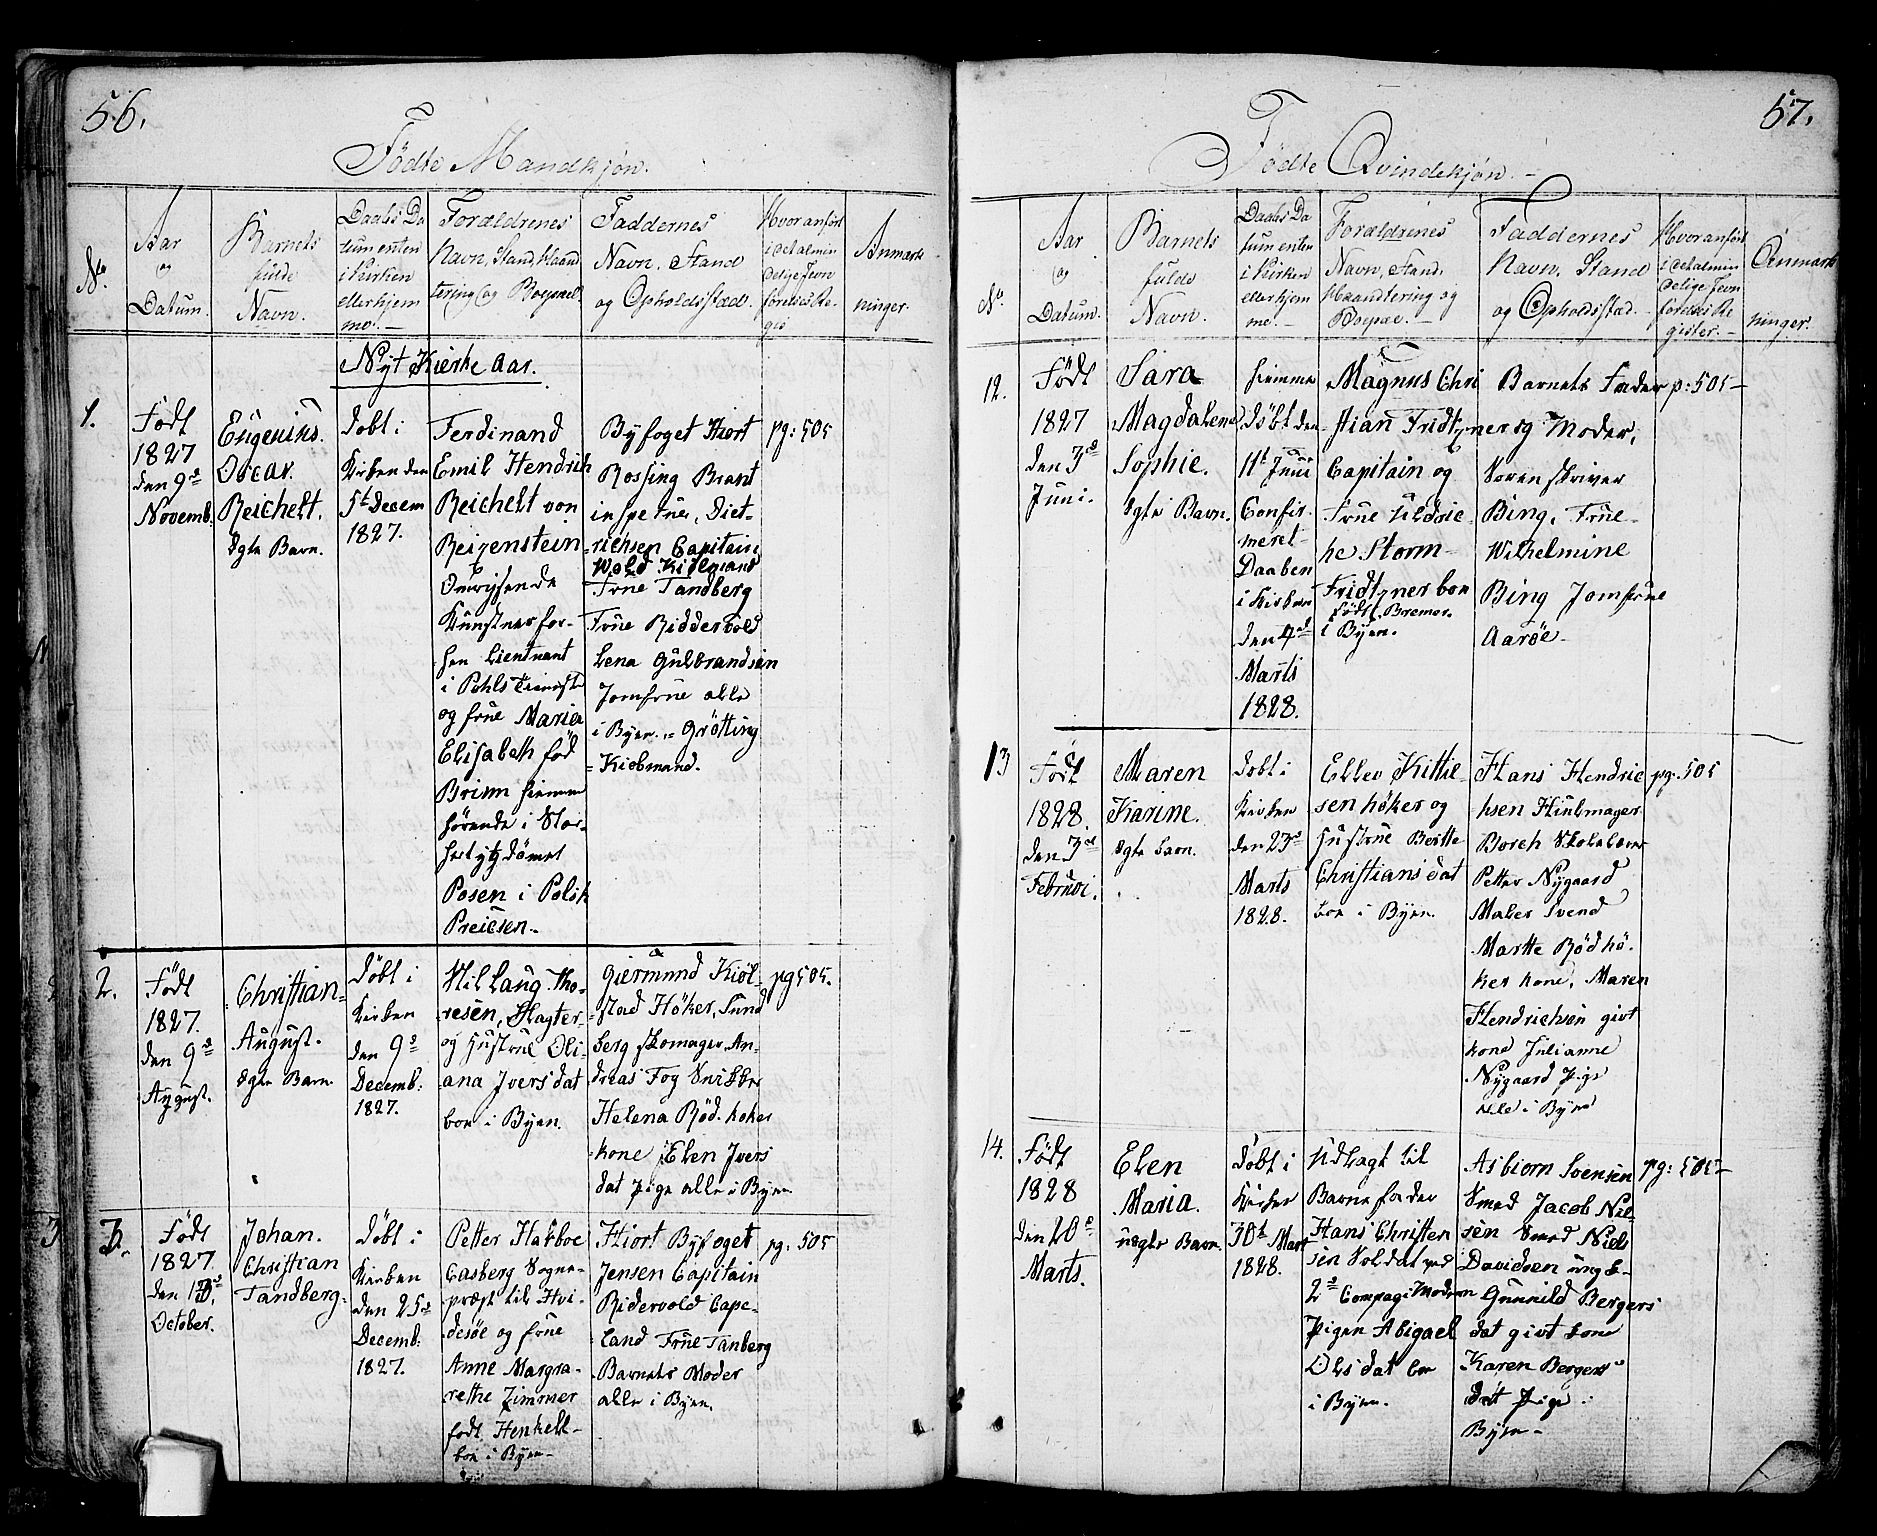 56.
Fødte Mandkjøn.
No.
Aar
og
Datum.
Barnets
fulde
Navn.
Daabs Da
tum enten
i Kirken
eller hjem
me. —
Forældrenes
Navn, Stand, Haand
tering og Boepæl.
Faddernes
Navn, Stand
og Opholdsstæd.
Hvor anført
i det almin
delige Jevn
førelses Re
gis
Anmærk
ninger.
Nyt Kierke Aar.
1.
Født
1827
den 9de
Novemb.
Eugenius.
Oscar.
Reichelt.
Ægte Barn.
Døbt i
Kirken den
5t Decem
1827.
Ferdinand
Emil Hendrik
Reichelt von
Reizenstein
Omreysende
Kunstner for-
hen Lieutnant
i Pohlsk Tieneste
og frue Maria
Elisabeth fød
Brinn hiemme
hørende i Stor-
hertugdømet
Posen i Polsk
Preiesen.-
Byfoget Hiort
Rossing Brant
inspetuer, Diet-
-richsen Capitain
Wold Kiøbmand
Frue Tandberg
Frue Riddervold
Lena Gulbrandsen
Jomfrue alle
i Byen. = Grøtting
= Kiøbmand.
pg: 505
2.
Født
1827.
den 9de
August.
Christian-
August.
Ægte Barn.
Døbt i
Kirken
den 9de
Decemb:
1827.
Nil Laug. Tho-
resen, Slagter-
og Hustrue Oli-
ana Iversdat
boe i Byen.
Giermund Kiøl-
stad Høker, Sund
berg skomager An-
dreas Fog Snikker
Helena Rød. høker
kone Elen Ivers
dat Pige alle i Byen
pg 505.
3.
Født
1827.
den 13de
October.
Johan.
Christian
Tandberg.
Døbt i
Kirken
den 25de
Decemb:
1827.
Petter Hakboe
Casberg Sogne-
præst til Hvi-
desøe og frue
Anne Margra-
rethe Zimmer
født Henkell-
boe i Byen-
Hiort Byfoget
Jensen Capitain
Ridervold Cape-
land Frue Tanberg
Barnets Moder
alle i Byen.
pg. 505
57.
Fødte Qvindekjøn. -
No.
Aar
og
Datum.
Barnets
fulde
Navn.
Daabs Da
tum enten
i Kirken
eller hjem
me. —
Forældrenes
Navn, Stand,
Haandtering og
Boepæl. —
Faddernes
Navn, Stand
og Opholdsstad.
Hvor anført
i det almin
delige Jevn
førelses Re
gister. —
Anmærk
ninger.
12.
Født
1827
den 3de
Juni.
Sara
Magdalena
Sophie.
Ægte Barn.
hiemme
Døbt den
11t Juni
Confir-
meret
Daaben
i Kirken
den 4de
Marts
1828.
Magnus Chri
stian Fridtzner
Capitain og
Frue Uldrie-
he Storm-
Fridtzner boe
Født Bremer.
i Byen.
Barnets Fader
og Moder,
Sorenskriver
Bing, Frue-
Wilhelmine
Bing Jomfrue
Aarøe-
p: 505-
13
Født
1828.
den 3de
Februi.
Maren
Karine.
Ægte barn.
Døbt i
Kirken
den 23de
Marts
1828.
Ellev Kittil-
sen høker og
Hustrue Birtte
Christiansdat
boe i Byen.
Hans Hendric
hsen Hiulmager
Borch
Petter Nygaard
Maler Svend
Martte Rød hø-
ker kone, Maren
Hendrichsen givt
kone Julianne
Nygaard Pige
alle i Byen
pg. 505
14.
Født
1828
den 20de
Marts.
Elen
Maria.
uægte Barn.
Døbt i
Kirken
30t Mart
1828.
Udlagt til
Barnefader
Hans Christen
sen Soldat ved
2de Compagi Modern
Pigen Abigael
Olsdat boe
i Byen.
Asbiørn Svensen
Smed Jacob Nil-
sen Smed Niels
Davidsen ung k-
Gunnild Bergers
dat givt kone
Karen Bergers
dat Pige i
Byen -
pg: 505-